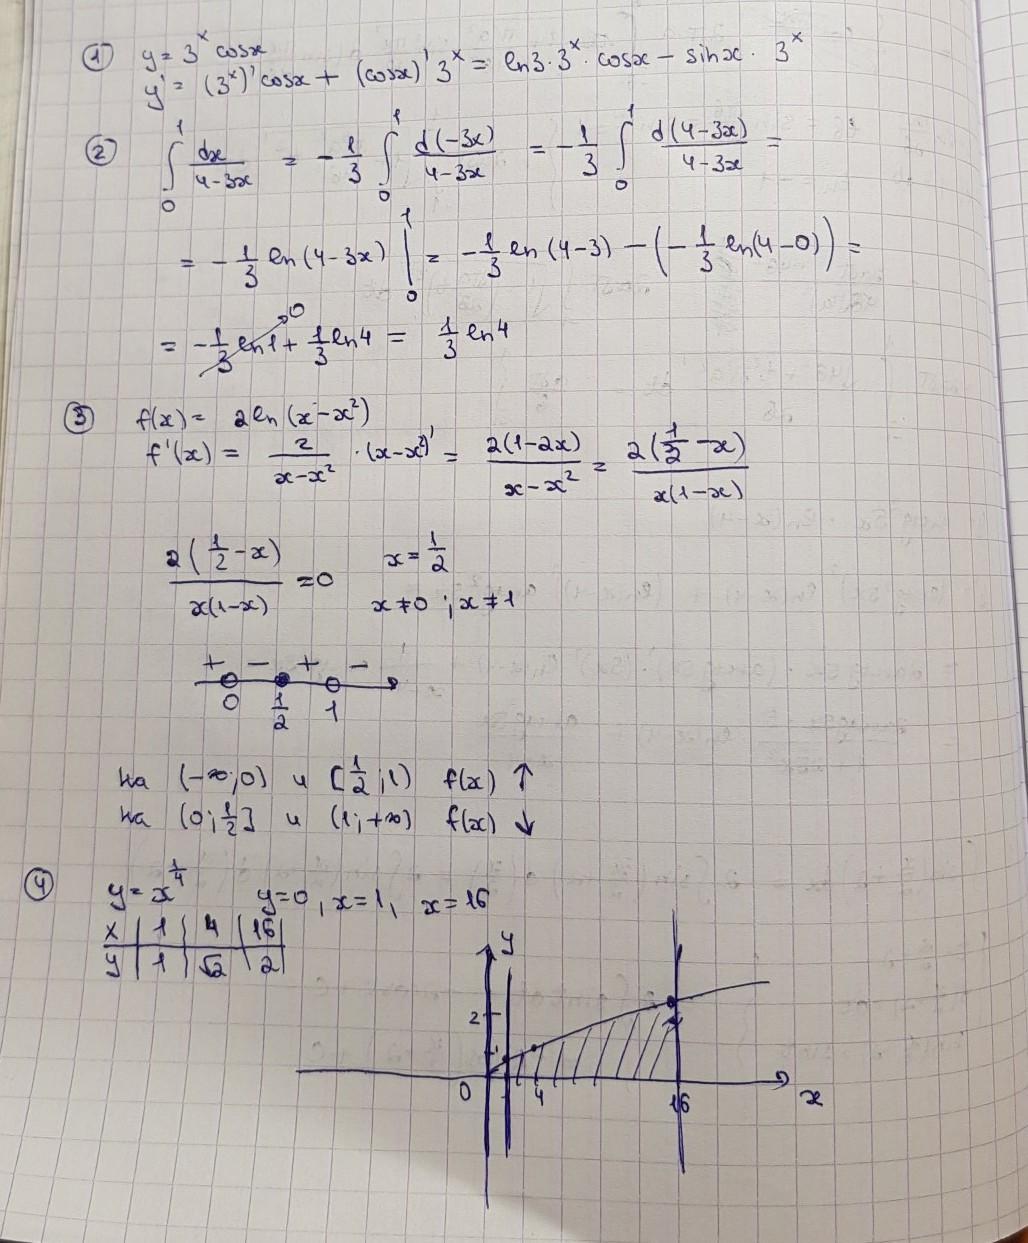 ① y = 3^x cosx
y' = (3^x)' cosx + (cosx)' 3^x = ln3 · 3^x · cosx − sinx · 3^x
② ∫₀¹ dx/(4−3x) = −1/3 ∫₀¹ d(−3x)/(4−3x) = −1/3 ∫₀¹ d(4−3x)/(4−3x) =
= −1/3 ln(4−3x) |₀¹ = −1/3 ln(4−3) − (−1/3 ln(4−0)) =
= −1/3 ln1 + 1/3 ln4 = 1/3 ln4
0
③ f(x) = 2ln(x−x²)
f'(x) = 2/(x−x²) · (x−x²)' = 2(1−2x)/(x−x²) = 2(1/2−x)/(x(1−x))
2(1/2−x)/(x(1−x)) = 0 x = 1/2
x ≠ 0 ; x ≠ 1
+ − + −
0 1/2 1
на (−∞;0) и [1/2;1) f(x) ↑
на (0;1/2] и (1;+∞) f(x) ↓
④ y = x^(1/4) y=0, x=1, x=16
x | 1 | 4 | 16 |
y | 1 | √2 | 2 |
y
2
1
0 1 4 16 x